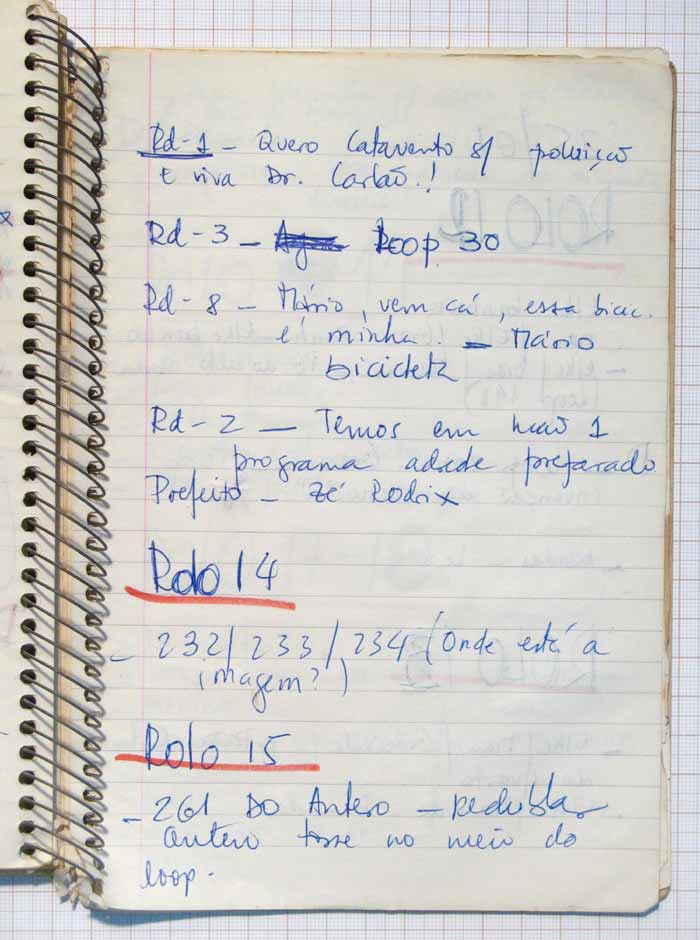 Rd-1 - Quero Catavento s/ poluição
E viva Dr. Carlão.!
Rd-3 - Loop 30
Rd-8 - Mário, vem cá, essa bicic.
é minha. - Mário
bicicleta
Rd-2 - Temos em mão 1
programa adede preparado
Prefeito - Zé Rodrix
Rolo 14
- 232/233/234 (Onde está a
imagem?)
Rolo 15
- 261 Do Antero - Redublar
Antero tosse no meio do
loop.